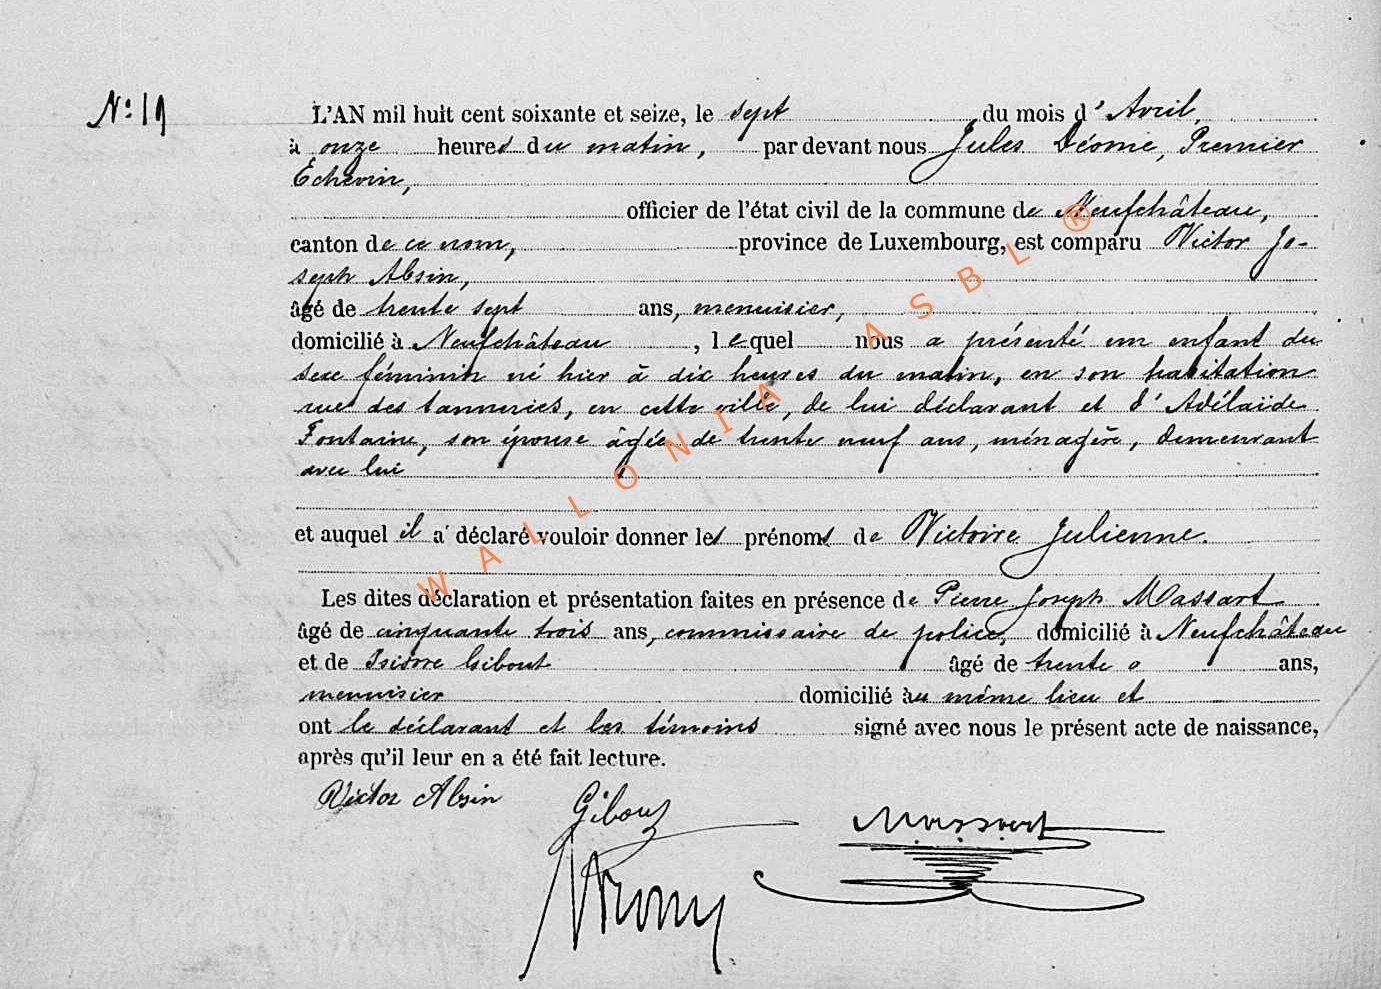 N° 19
L'AN mil huit cent soixante et seize, le sept du mois d'Avril,
à onze heures du matin, par devant nous Jules Déome, Premier
Echevin,
officier de l'état civil de la commune de Neufchâteau,
canton de ce nom, province de Luxembourg, est comparu Victor Jo-
seph Absin,
âgé de trente sept ans, menuisier,
domicilié à Neufchâteau, lequel nous a présenté un enfant du
sexe féminin né hier à dix heures du matin, en son habitation
rue des tanneries, en cette ville, de lui déclarant et d'Adélaïde
Fontaine, son épouse âgée de trente neuf ans, ménagère, demeurant
avec lui
et auquel il a déclaré vouloir donner les prénoms de Victoire Julienne.
Les dites déclaration et présentation faites en présence de Pierre Joseph Massart
âgé de cinquante trois ans, commissaire de police, domicilié à Neufchâteau
et de Isidore Gibout âgé de trente ans,
menuisier domicilié au même lieu et
ont le déclarant et les témoins signé avec nous le présent acte de naissance,
après qu'il leur en a été fait lecture.
Victor Absin Gibout Massart
WALLONIA ASBL ®